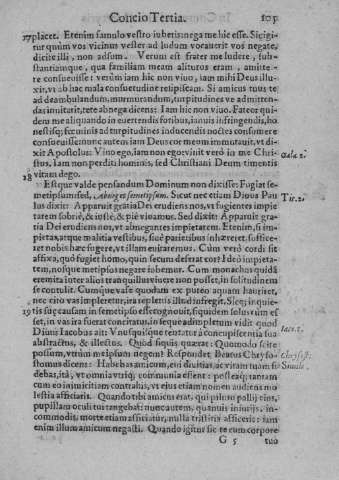 Concio Tertia. 105
17 placet. Etenim famulo vestro iubetis: nega me hic esse. Sicigi-
tur quùm vos vicinus vester ad ludum vocauerit vos negate,
dicite illi, non adsum. Verum est frater me ludere, sub-
stantiamque, qua familiam meam aliturus eram, amitte-
re consueuisse: verùm iam hic non viuo, iam mihi Deus illu-
xit, vt ab hac mala consuetudine resipiscam. Si amicus tuus te
ad deambulandum, murmurandum, turpitudines ve admitten-
das inuitet, te te abnega dicens: Iam hic non viuo. Fateor qui-
dem me aliquando in euertendis fotibus, ianuis infringendis, ho-
nestisq; fœminis ad turpitudines inducendis noctes consumere
consueuisse: nunc autem iam Deus cor meum immutauit, vt di-
xit Apostolus: Viuo ego, iam non ego: viuit vero in me Chri-
stus, Iam non perditi hominis, sed Christiani Deum timentis
18 vitam dego.
Gala. 2.
Estque valde pensandum Dominum non dixisse: Fugiat se-
metipsum, sed, Abneget semetipsum. Sicut nec etiam Diuus Pau
lus dixit: Apparuit gratia Dei erudiens nos, vt fugientes impie
tatem sobriè, & iustè, & piè viuamus. Sed dixit: Apparuit gra-
tia Dei erudiens nos, vt abnegantes impietatem. Etenim, si im-
pietas, atque malitia vestibus, siue parietibus inhæreret: suffice-
ret nobis hæc fugere, vt illam euitaremus. Cùm verò cordi sit
affixa, quò fugiet homo, quin secum deferat cor? Ideò impieta-
tem, nosque metipsos negare iubemur. Cum monachus quidã
eremita inter alios tranquillus viuere non posset, in solitudinem
se contulit. Cumque vase quodam ex puteo aquam hauriret,
nec citò vas impleretur, ira repletus illud infregit. Sicq; in quie-
19 tis suæ causam in semetipso esse cognouit, siquidem solus cum es
set, in vas ira fuerat concitatus, in seque adimpletum vidit quod
Diuus Iacobus ait: Vnusquisque tentatur à concupiscentia sua
abstractus, & illectus. Quòd siquis quærat: Quomodo scite
possum, vtrùm meipsum negem? Respondet Beatus Chryso-
homus dicens: Habebas amicum, cui diuitias, ac vitam tuam su
debas, ità, vt omnia vtriq; communia essent: postea q; tantam
cum eo inimicitiam contrahis, vt eius etiam nomen audiens mo
lestia afficiaris. Quando tibi amicus erat, qui pilum pallij eius,
pupillam oculi tui tangebat: nunc autem, quamuis iniurijs, in-
commodis, morte etiam afficiatur, nulla tristitia afficeris: iam
enim illum amicum negasti. Quando igitur sic te cum corpore
Tit. 2.
Iaco. 1.
Chrysost.
Simile.
G 5 tuo